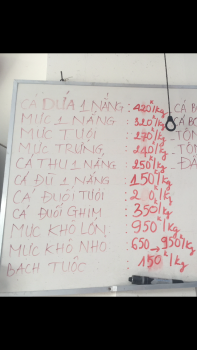 CÁ DỨA 1 NẮNG : 420K/kg _ CÁ B
MỰC 1 NẮNG : 320K/kg CÁ BO
MỰC TƯƠI : 270K/kg _ TÔM
MỰC TRỨNG : 240K/kg _ TÔ
CÁ THU 1 NẮNG : 250K/kg _ ĐA
CÁ ĐÙ 1 NẮNG : 150K/kg
CÁ ĐUỐI TƯƠI : 2 0K/kg
CÁ ĐUỐI GHIM : 350K/kg
MỰC KHÔ LỚN : 950K/kg
MỰC KHÔ NHỎ : 650 → 950K/kg
BẠCH TUỘC : 150K/kg